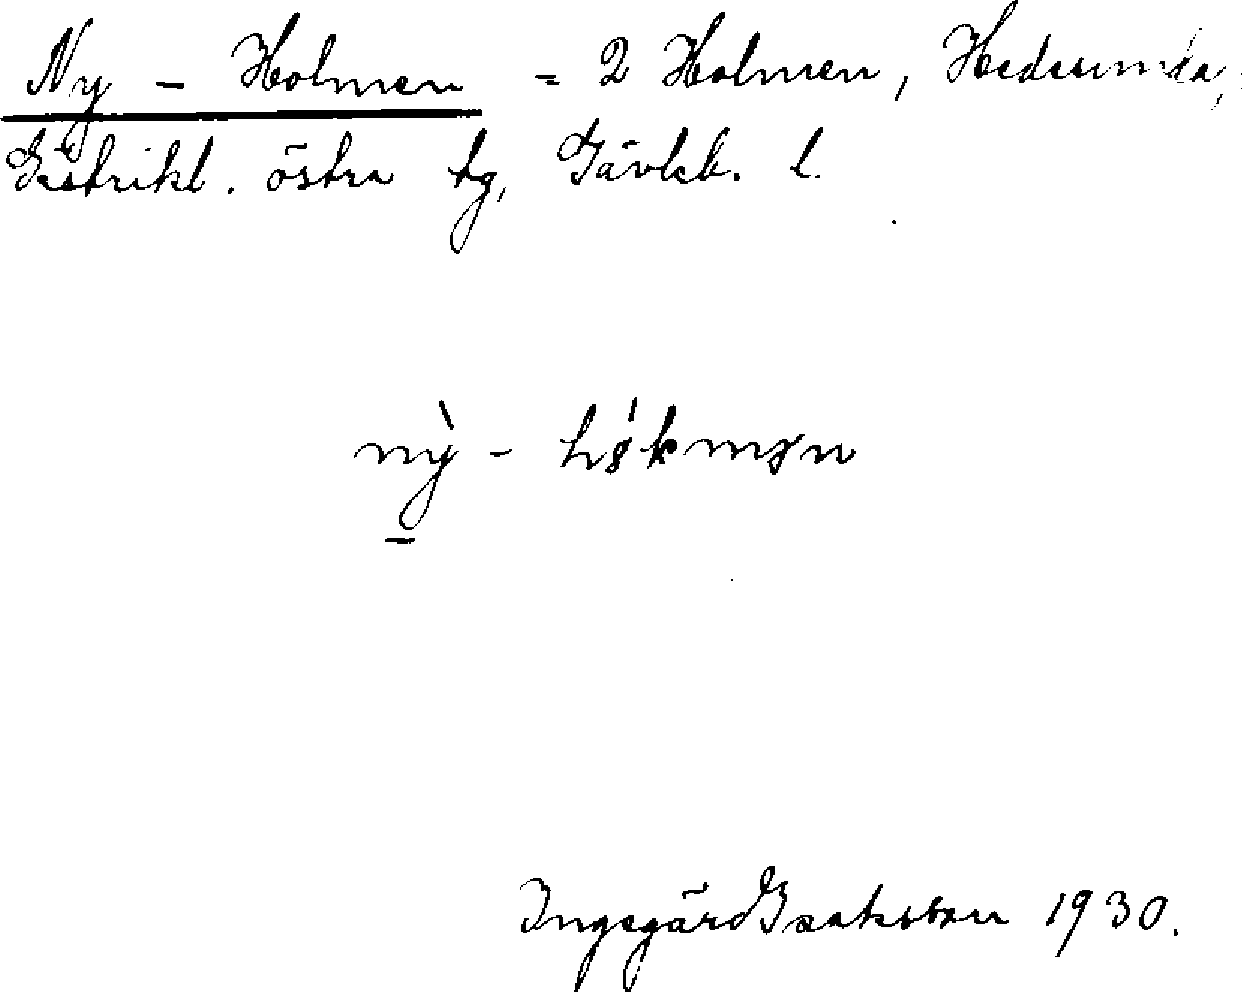 Ny - Holmen = 2 Holmen, Hedesunda,
Gästrikl. östra tg, Gävleb. l.
nỳ̠ -
Ingegärd Isaksson 1930.